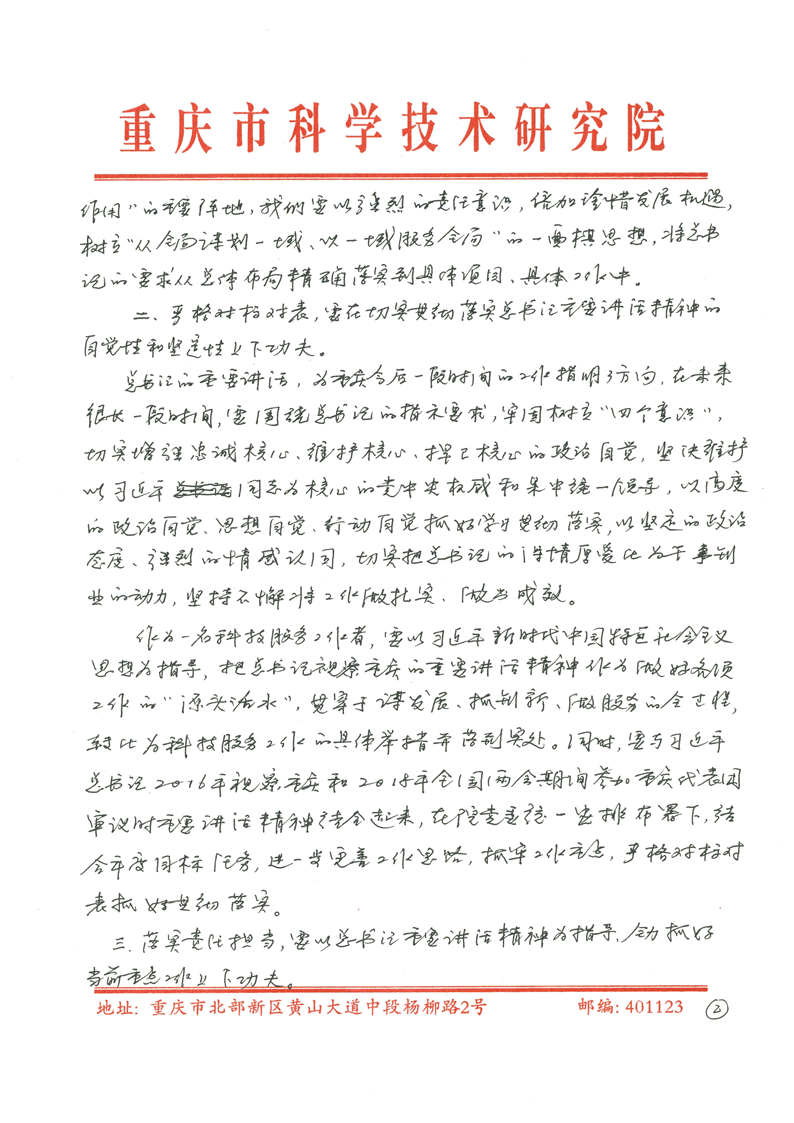 重庆市科学技术研究院
作用”的重要阵地，我们要以强烈的责任意识，倍加珍惜发展机遇，
树立“从全局谋划一域、以一域服务全局”的一盘棋思想，将总书
记的要求从总体布局精确落实到具体项目、具体工作中。
二、严格对标对表，要在切实贯彻落实总书记重要讲话精神的
自觉性和坚定性上下功夫。
总书记的重要讲话，为重庆今后一段时间的工作指明了方向，在未来
很长一段时间，要围绕总书记的指示要求，牢固树立“四个意识”，
切实增强忠诚核心、维护核心、捍卫核心的政治自觉，坚决维护
以习近平同志为核心的党中央权威和集中统一领导，以高度
的政治自觉、思想自觉、行动自觉抓好学习贯彻落实，以坚定的政治
态度、强烈的情感认同，切实把总书记的深情厚爱化为干事创
业的动力，坚持不懈将工作做扎实、做出成效。
作为一名科技服务工作者，要以习近平新时代中国特色社会主义
思想为指导，把总书记视察重庆的重要讲话精神作为做好各项
工作的“源头活水”，贯穿于谋发展、抓创新、做服务的全过程，
转化为科技服务工作的具体举措并落到实处。同时，要与习近平
总书记2016年视察重庆和2018年全国两会期间参加重庆代表团
审议时重要讲话精神结合起来，在院党委统一安排布署下，结
合年度目标任务，进一步完善工作思路，抓牢工作重点，严格对标对
表抓好贯彻落实。
三、落实责任担当，要以总书记重要讲话精神为指导，全力抓好
当前重点工作上下功夫。
地址: 重庆市北部新区黄山大道中段杨柳路2号 邮编: 401123 ②